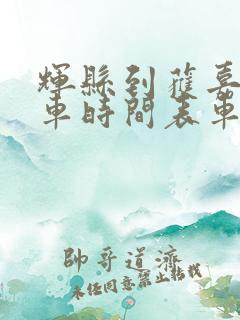 輝縣到獲嘉
車時間表車
帥哥道濟
未任同意禁止转载